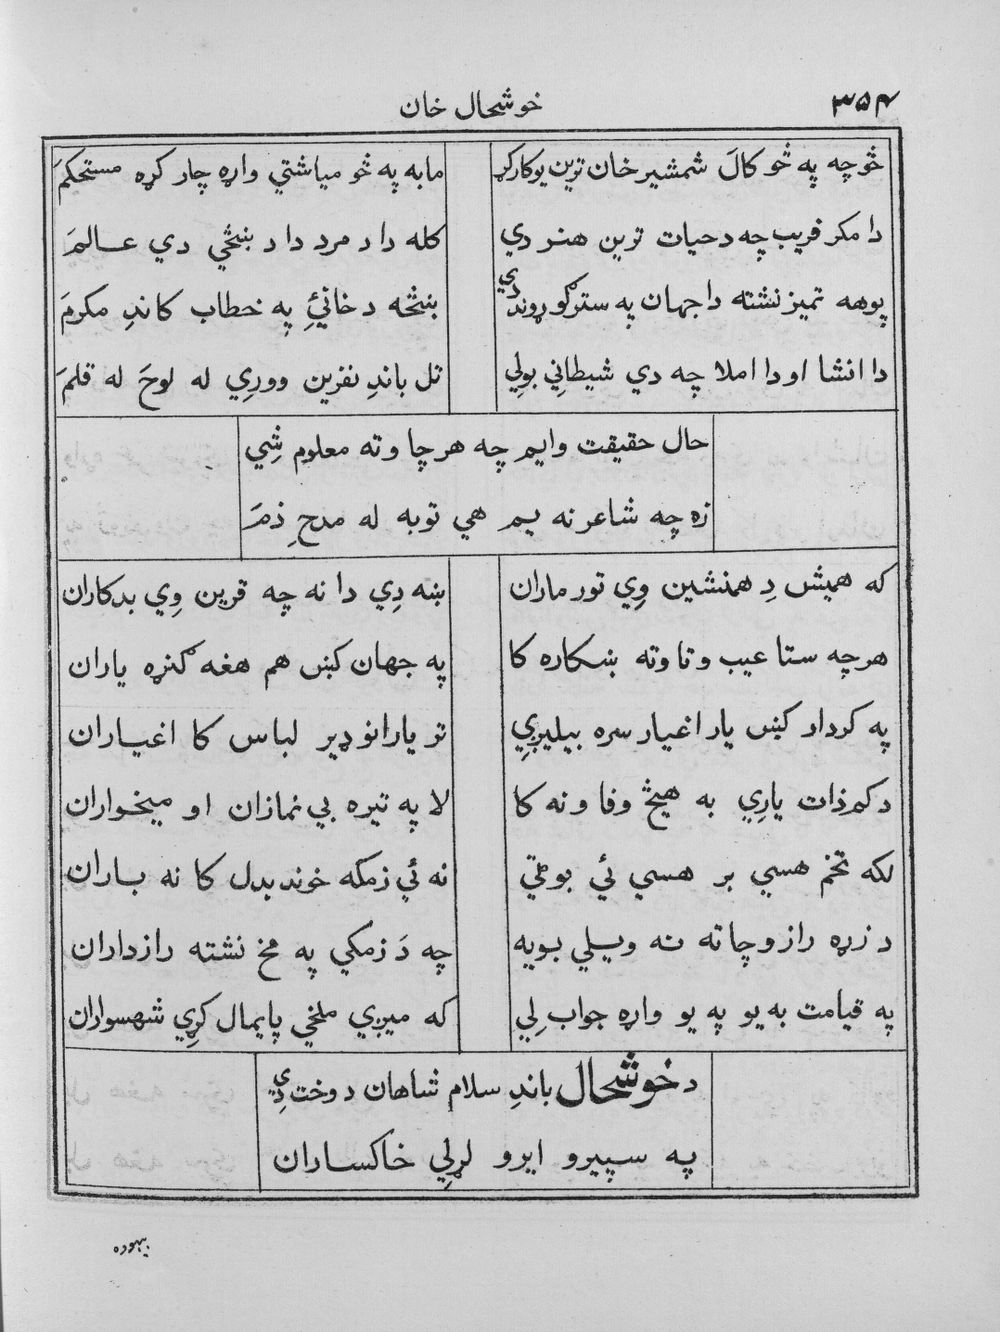 ۳۵۴
خوشحال خان
څو چه په څو کالَ شمشیر خان ترین یو کار کړ
مابه په څو میاشتي واړه چار کړه مستحکمَ
دا مکر فریب چه د حیات ترین هنر دي
کله دا د مرد دا د ښځي دي عالمَ
پوهه تمیز نشته دا جهان په سترګو ړوند دي
ښځه د خانۍ په خطاب کاندِ مکرمَ
دا انشا او دا املا چه دي شیطاني بولي
تل باندِ نفرین ووري له لوحَ له قلمَ
حال حقیقت وایم چه هر چا وته معلوم شِي
زه چه شاعر نه یم هي توبه له مدحِ ذمَ
که همېش دِ همنشین وِي تور ماران
ښه دِي دا نه چه قرین وِي بدکاران
هر چه ستا عیب و تا وته ښکاره کا
په جهان کښ هم هغه ګنړه یاران
په کردار کښ یار اغیار سره بیلیږي
تر یارانو ډیر لباس کا اغیاران
د کم ذات یاري به هیڅ وفا ونه کا
لا په تیره بي نمازان او میخواران
لکه تخم هسي بر هسي ئي بوټي
نه ئي زمکه خوند بدل کا نه باران
د زړه راز و چا ته نه ویلي بویه
چه دَ زمکي په مخ نشته رازداران
په قیامت به یو په یو واړه جواب لِي
که میږي ملخي پایمال کړِي شهسواران
د خوشحال باندِ سلام شاهان د وخت دِي
په سپیرو ایرو لړلي خاکساران
بیهوده